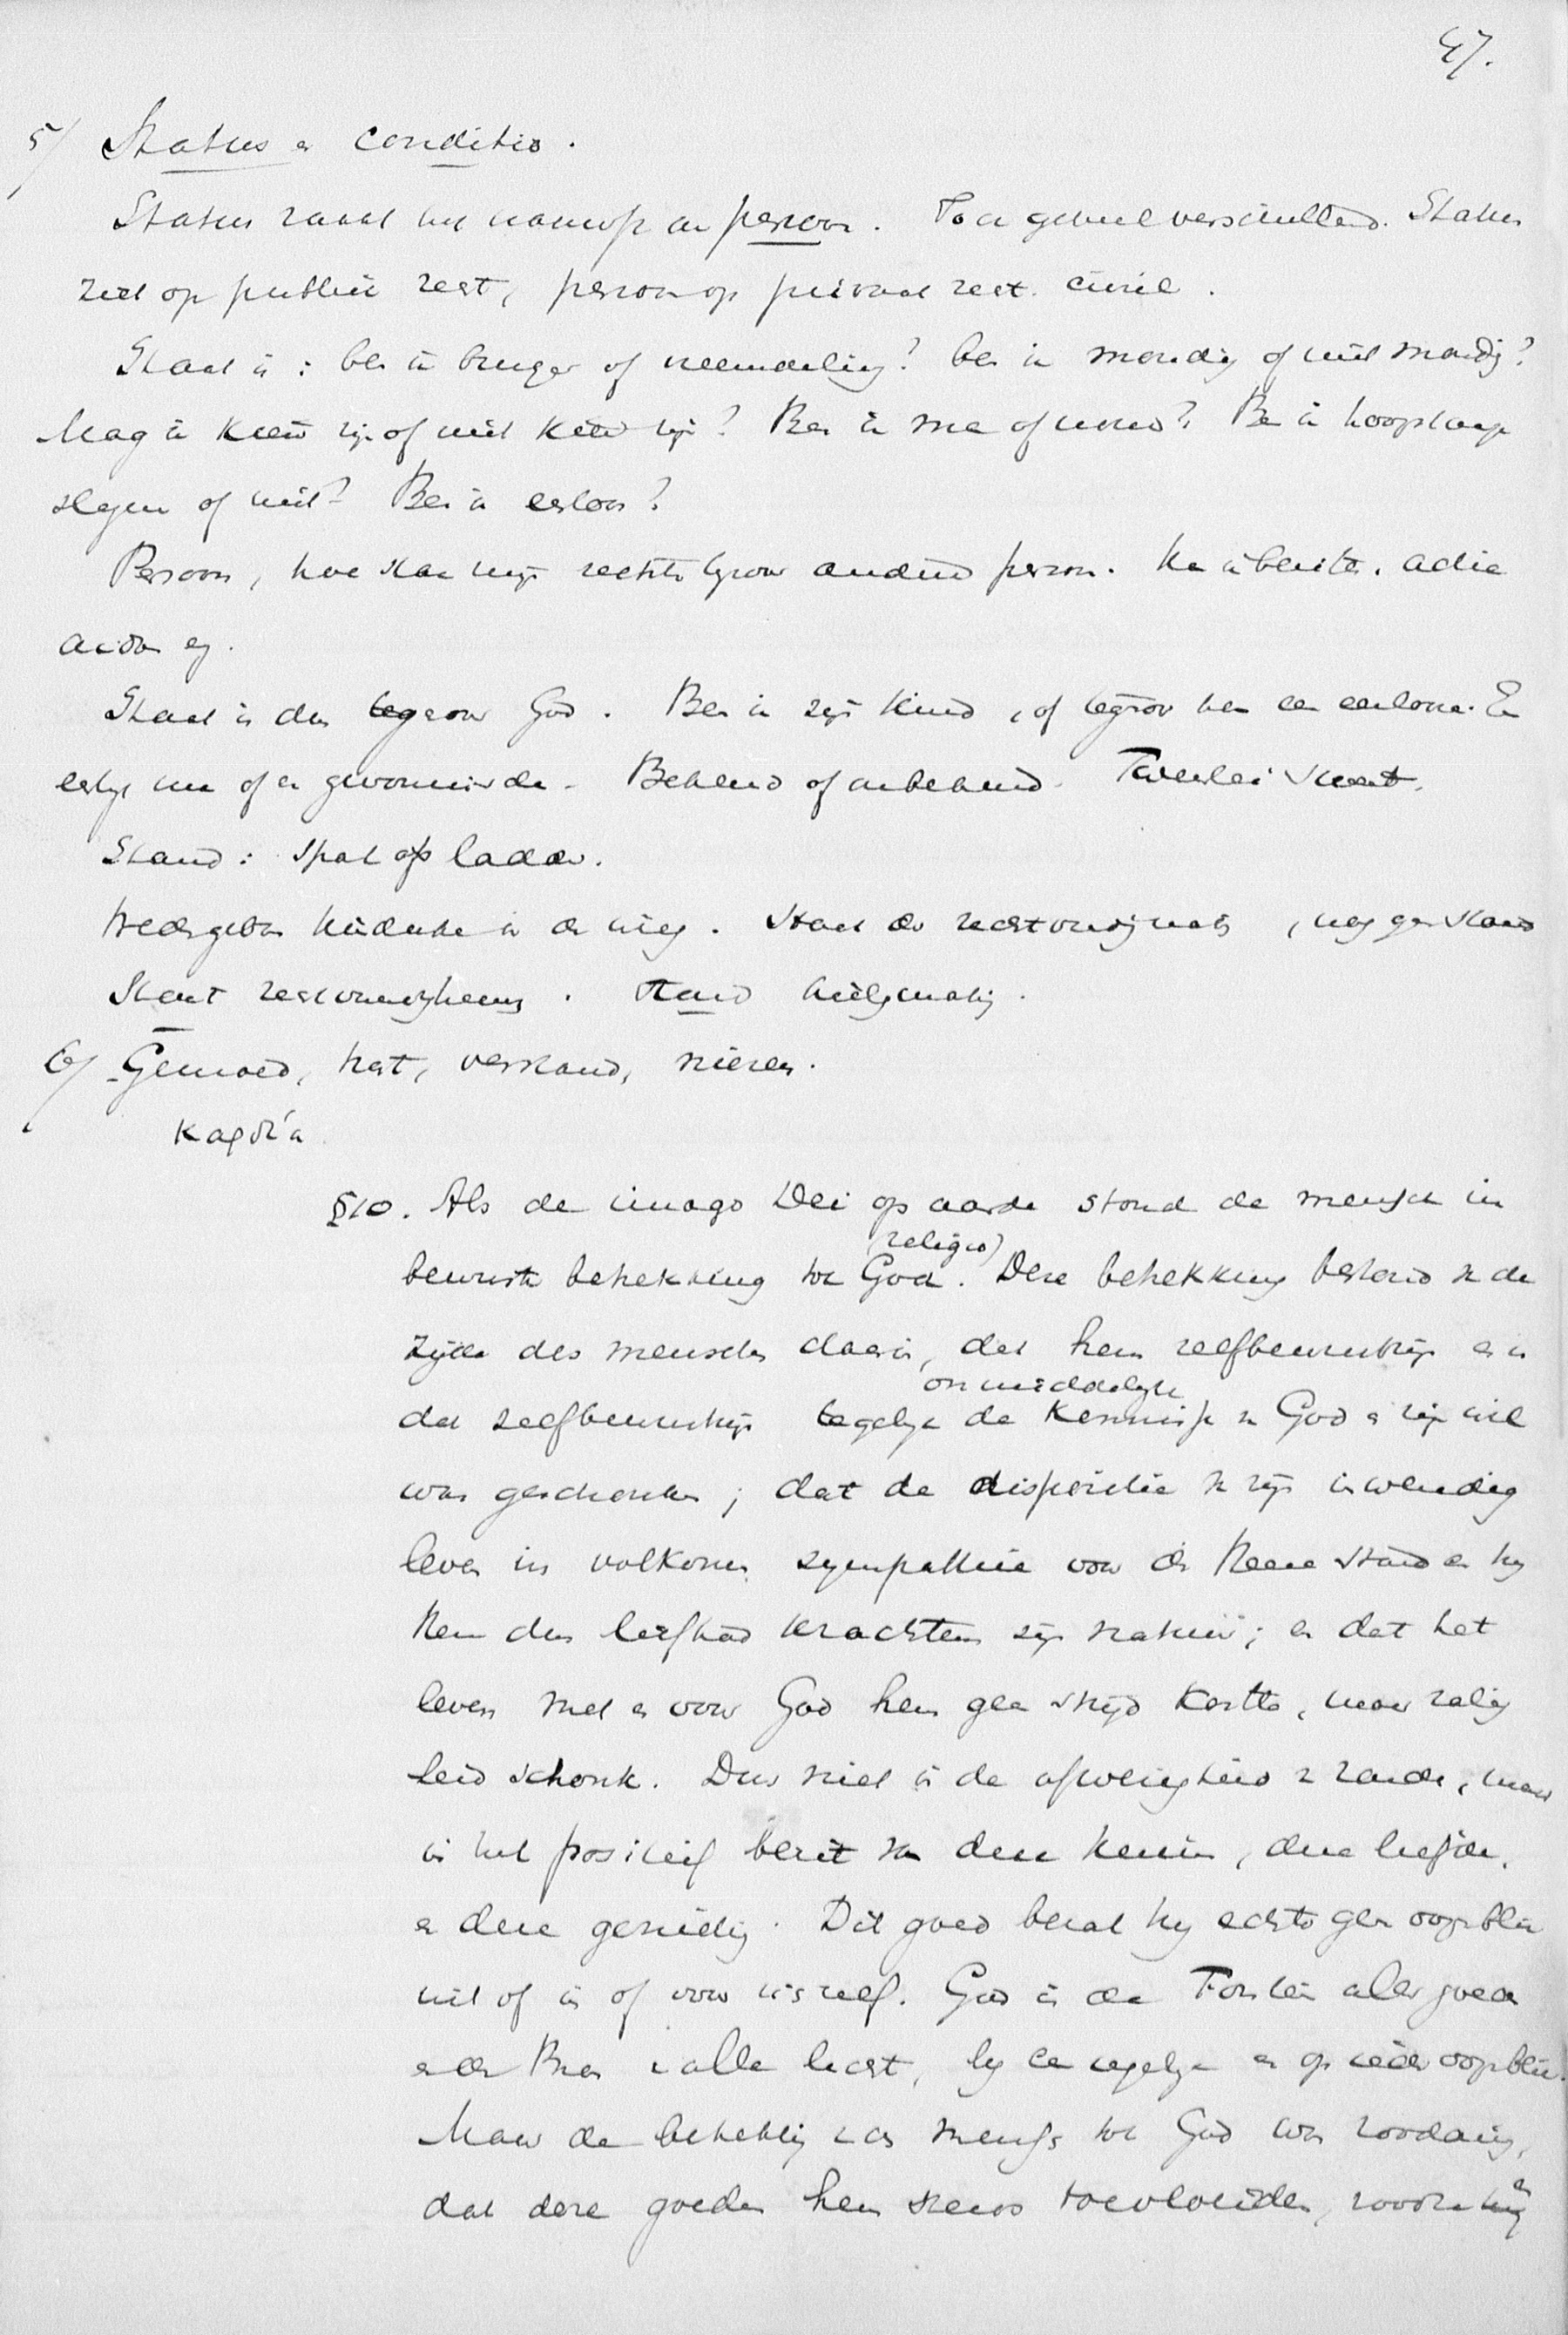 47.
5/ Status & conditio.
Status raakt het nauwst aan persoon. Toch geheel verschillend. Status
ziet op publiek recht, persoon op privaat recht. civiel.
Staat is: ben ik burger of vreemdeling? ben ik mondig of niet mondig?
Mag ik kiezer zijn of niet kiezer zijn? Ben ik man of vrouw? Ben ik
slagen of niet? Ben ik eerloos?
Persoon, hoe staan mijn rechten tegenover andere person.
Staat is dus tegenover God. Ben ik zijn kind, of tegenover hem een eerlooze. Een
eerlijk man of een gevonniste. Bekend of onbekend. Tweeërlei staat.
Stand: spat op ladder.
Wedergeboren kindeke in de wieg. Staat der rechtvaardigmaking, nog geen stand
Staat rechtvaardigmaking. Stand heiligmaking.
6/ Gemoed, hart, verstand, nieren.
καρδία
§10. Als de imago Dei op aarde stond de mensch in
bewuste betrekking tot God. (religio) Deze betrekking bestond van de
zijde des menschen daarin, dat hem zelfbewustzijn en in
dat zelfbewustzijn tegelijk de onmiddelijke kennisse van God en zijn wil
was geschonken; dat de dispositie van zijn inwendig
leven in volkomen sympathie voor den Heere stond en hij
Hem dus liefhad krachtens zijn natuur; en dat het
leven met en voor God hem geen strijd kostte, maar zalig
heid schonk. Dus niet in de afwezigheid van zonde, maar
in het positief bezit van deze kennis, deze liefde,
en deze genieting. Dit goed bezat hij echter geen oogenblik
uit of in of voor zichzelf. God is de Fontein aller goeden
en de Bron van alle licht, bij en op ieder oogenblik.
Maar de betrekking van den mensch tot God was zoodanig,
dat deze goeden hem steeds toevloeiden, zoodra hij